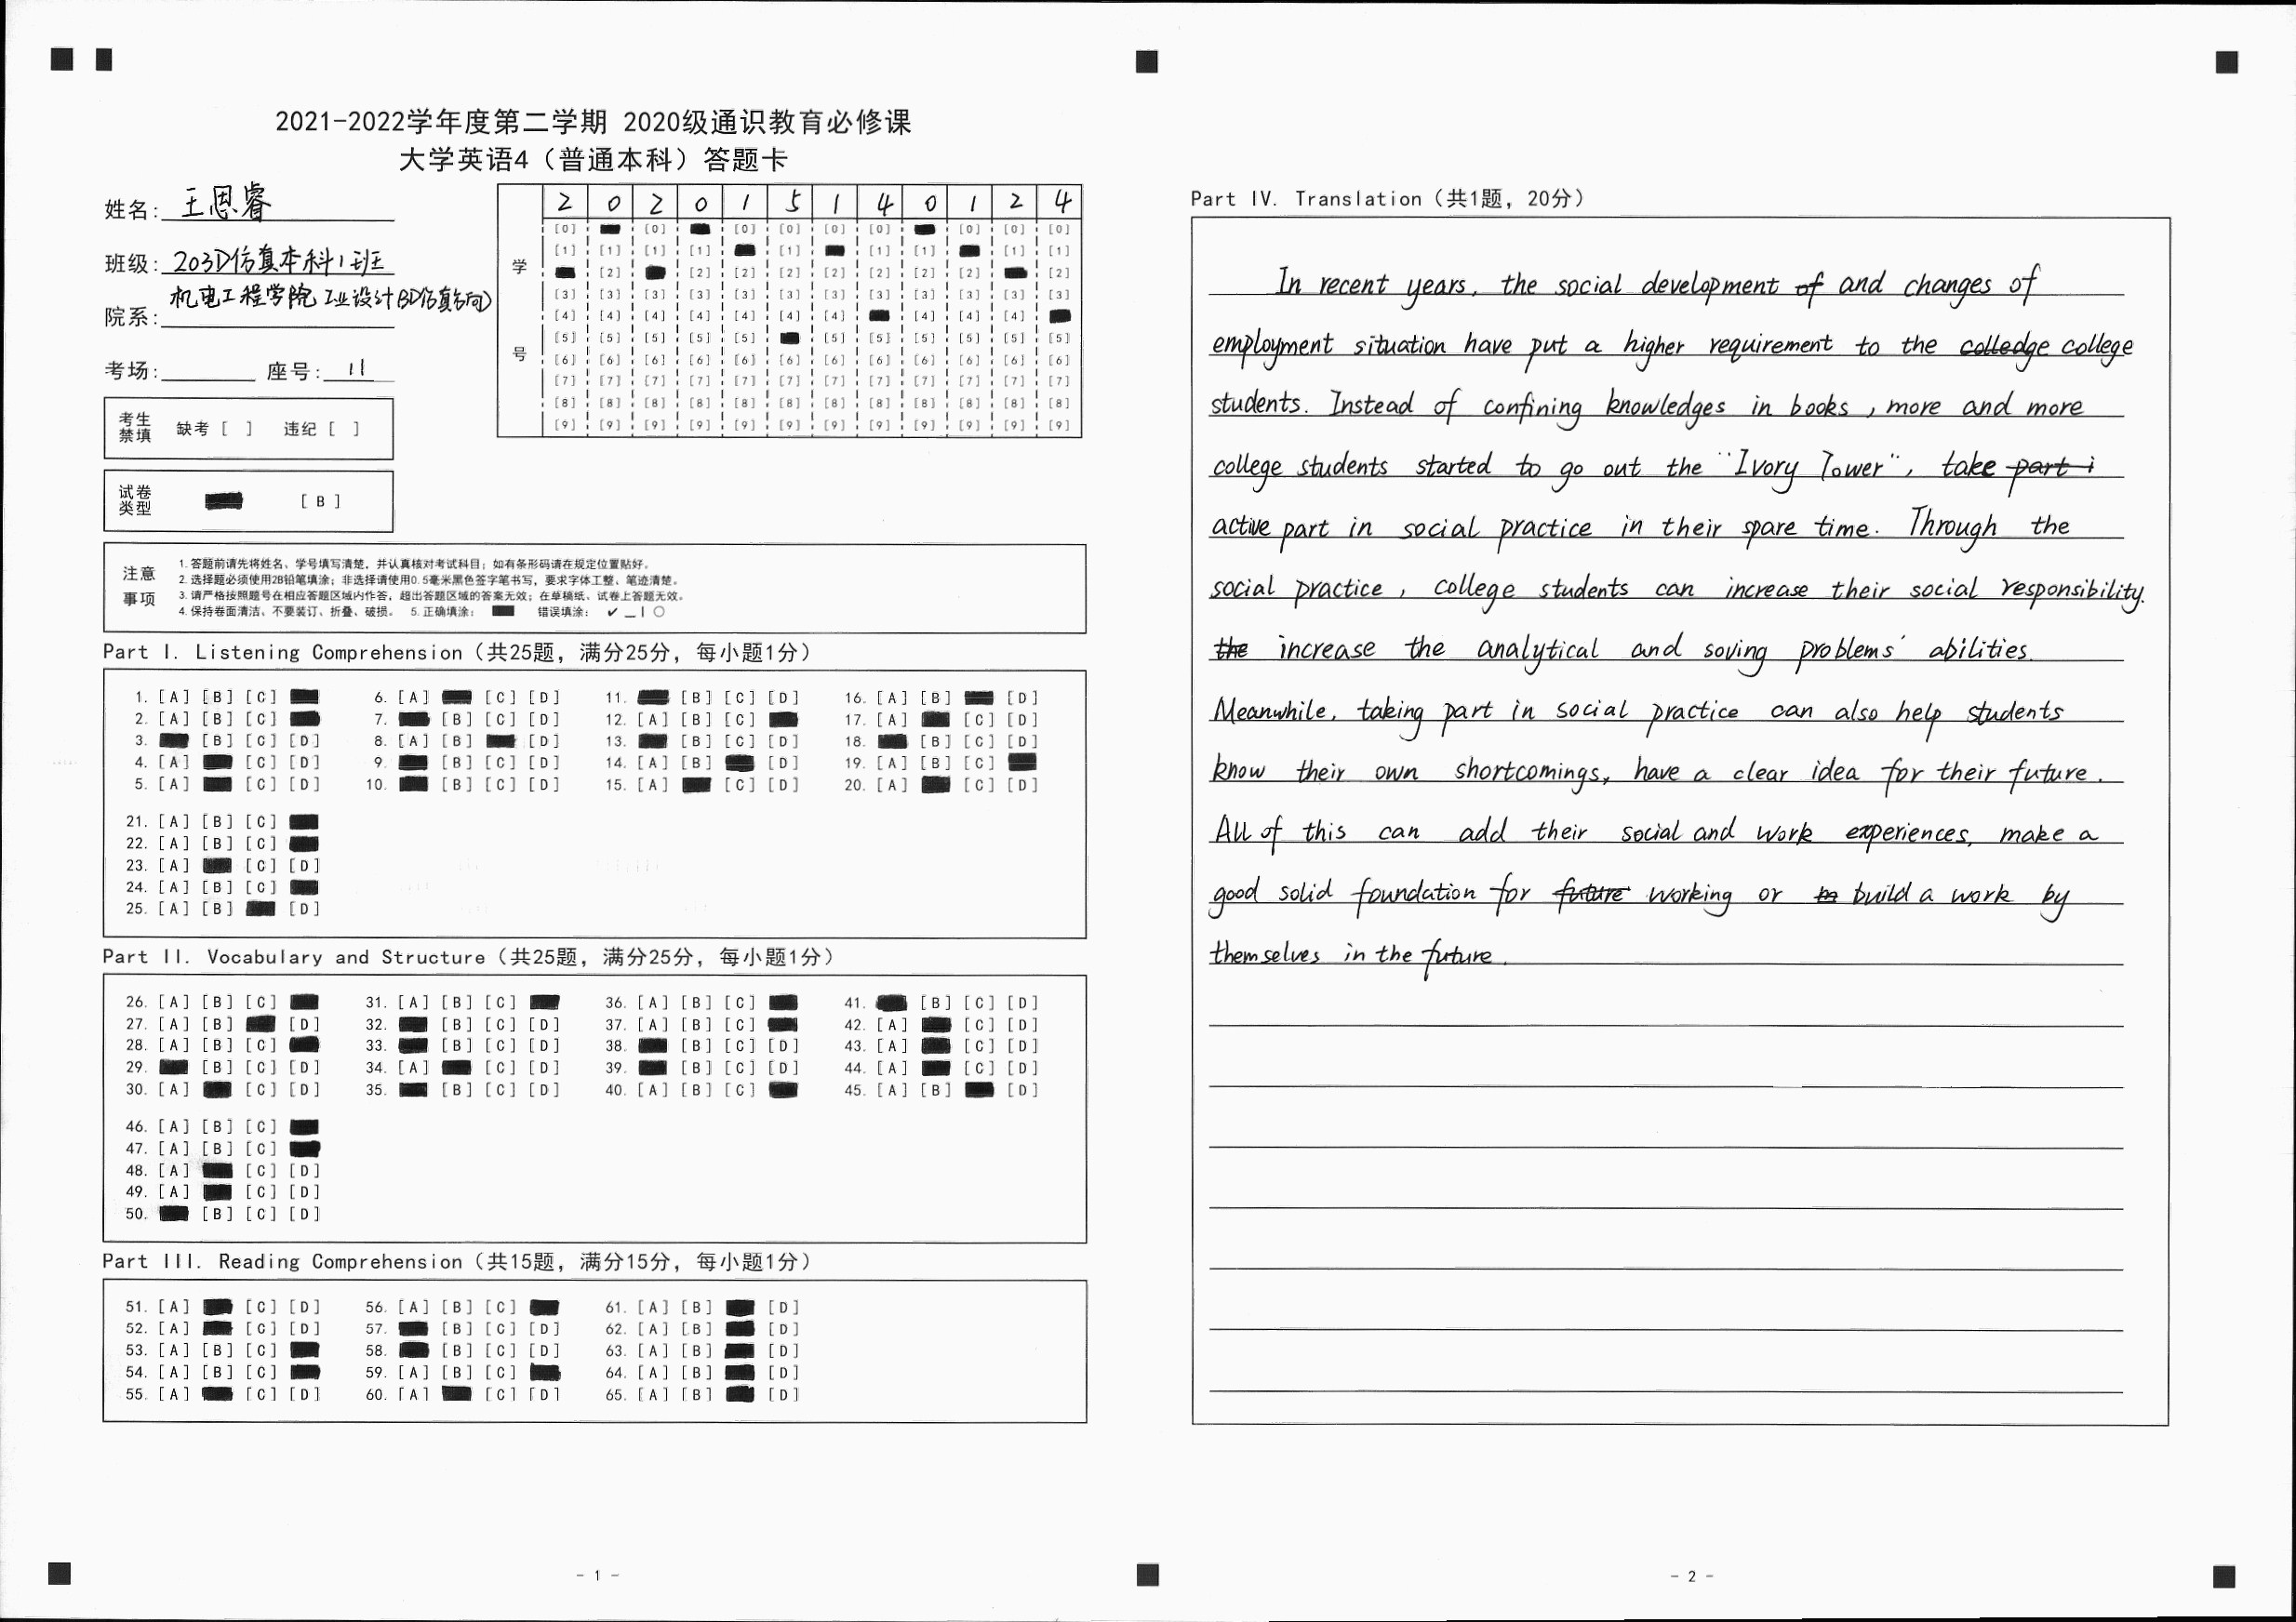 2021-2022学年度第二学期 2020级通识教育必修课
大学英语4（普通本科）答题卡
姓名: 王恩睿
班级: 203D仿真本科1班
院系: 机电工程学院 工业设计(3D仿真方向)
考场: 座号: 11
学号
2 0 2 0 1 5 1 4 0 1 2 4
[0] [0] [0] [0] [0] [0] [0] [0] [0]
[1] [1] [1] [1] [1] [1] [1] [1] [1]
[2] [2] [2] [2] [2] [2] [2] [2] [2]
[3] [3] [3] [3] [3] [3] [3] [3] [3] [3] [3] [3]
[4] [4] [4] [4] [4] [4] [4] [4] [4] [4]
[5] [5] [5] [5] [5] [5] [5] [5] [5] [5] [5]
[6] [6] [6] [6] [6] [6] [6] [6] [6] [6] [6] [6]
[7] [7] [7] [7] [7] [7] [7] [7] [7] [7] [7] [7]
[8] [8] [8] [8] [8] [8] [8] [8] [8] [8] [8] [8]
[9] [9] [9] [9] [9] [9] [9] [9] [9] [9] [9] [9]
考生禁填 缺考 [ ] 违纪 [ ]
试卷类型 [ B ]
注意事项
1. 答题前请先将姓名、学号填写清楚，并认真核对考试科目；如有条形码请在规定位置贴好。
2. 选择题必须使用2B铅笔填涂；非选择请使用0.5毫米黑色签字笔书写，要求字体工整、笔迹清楚。
3. 请严格按照题号在相应答题区域内作答，超出答题区域的答案无效；在草稿纸、试卷上答题无效。
4. 保持卷面清洁、不要装订、折叠、破损。 5. 正确填涂： 错误填涂：
Part I. Listening Comprehension（共25题，满分25分，每小题1分）
1. [A] [B] [C] 6. [A] [C] [D] 11. [B] [C] [D] 16. [A] [B] [D]
2. [A] [B] [C] 7. [B] [C] [D] 12. [A] [B] [C] 17. [A] [C] [D]
3. [B] [C] [D] 8. [A] [B] [D] 13. [B] [C] [D] 18. [B] [C] [D]
4. [A] [C] [D] 9. [B] [C] [D] 14. [A] [B] [D] 19. [A] [B] [C]
5. [A] [C] [D] 10. [B] [C] [D] 15. [A] [C] [D] 20. [A] [C] [D]
21. [A] [B] [C]
22. [A] [B] [C]
23. [A] [C] [D]
24. [A] [B] [C]
25. [A] [B] [D]
Part II. Vocabulary and Structure（共25题，满分25分，每小题1分）
26. [A] [B] [C] 31. [A] [B] [C] 36. [A] [B] [C] 41. [B] [C] [D]
27. [A] [B] [D] 32. [B] [C] [D] 37. [A] [B] [C] 42. [A] [C] [D]
28. [A] [B] [C] 33. [B] [C] [D] 38. [B] [C] [D] 43. [A] [C] [D]
29. [B] [C] [D] 34. [A] [C] [D] 39. [B] [C] [D] 44. [A] [C] [D]
30. [A] [C] [D] 35. [B] [C] [D] 40. [A] [B] [C] 45. [A] [B] [D]
46. [A] [B] [C]
47. [A] [B] [C]
48. [A] [C] [D]
49. [A] [C] [D]
50. [B] [C] [D]
Part III. Reading Comprehension（共15题，满分15分，每小题1分）
51. [A] [C] [D] 56. [A] [B] [C] 61. [A] [B] [D]
52. [A] [C] [D] 57. [B] [C] [D] 62. [A] [B] [D]
53. [A] [B] [C] 58. [B] [C] [D] 63. [A] [B] [D]
54. [A] [B] [C] 59. [A] [B] [C] 64. [A] [B] [D]
55. [A] [C] [D] 60. [A] [C] [D] 65. [A] [B] [D]
- 1 -
Part IV. Translation（共1题，20分）
In recent years, the social development of and changes of
employment situation have put a higher requirement to the colledge college
students. Instead of confining knowledges in books, more and more
college students started to go out the "Ivory Tower", take part i
active part in social practice in their spare time. Through the
social practice, college students can increase their social responsibility.
the increase the analytical and soving problems' abilities.
Meanwhile, taking part in social practice can also help students
know their own shortcomings, have a clear idea for their future.
All of this can add their social and work experiences, make a
good solid foundation for future working or m build a work by
themselves in the future.
- 2 -